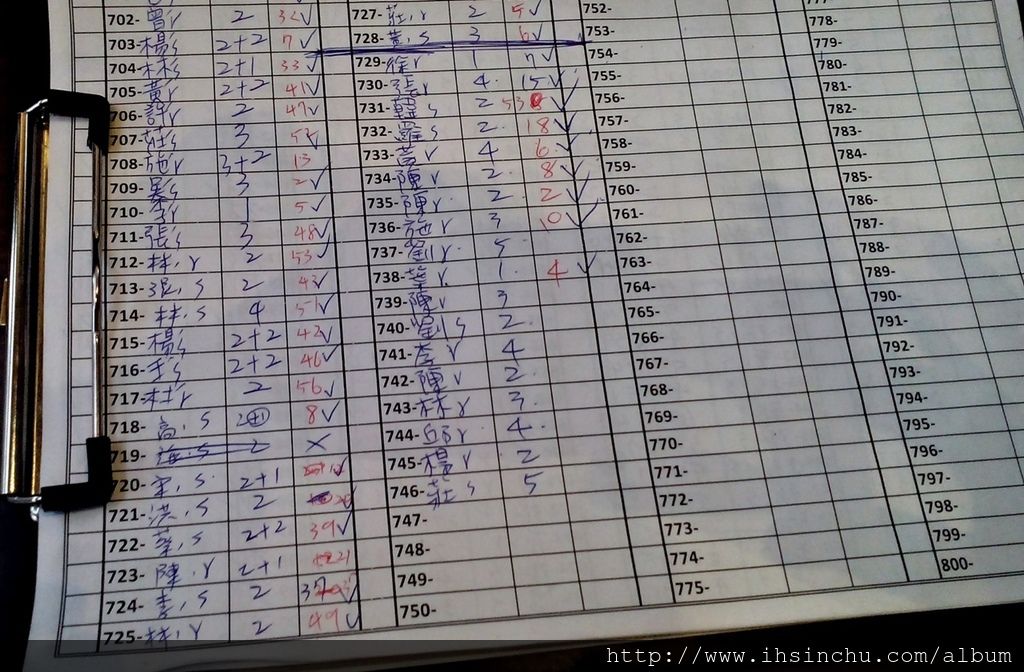 702- 曾r 2 32✓
703- 楊s 2+2 7✓
704- 林s 2+1 33✓
705- 黃r 2+2 41✓
706- 許r 2 47✓
707- 莊s 3 ✓
708- 施r 3+2 13
709- 3 2✓
710- 李r 1 5✓
711- 張s 3 48✓
712- 林,r 2 53✓
713- 張,s 2 43✓
714- 林,s 4 51✓
715- 楊s 2+2 42✓
716- 2+2 46✓
717- 杜r 2 56✓
718- 高,s 8✓
719- 2 ×
720- 宋,s 2+1 ✓
721- 洪,s 2
722- 蔡,s 2+2 39✓
723- 陳.r 2+1 21
724- 李,s 2
725- 林,r 2 49✓
727- 莊,r 2 5✓
728- 黃,s 3 6✓
729- 徐r 1 7✓
730- 張r 4 15✓
731- 龔s 2 53
732- 羅s 2 18✓
733- 黃r 4 6✓
734- 陳r 2 8✓
735- 陳r 2 2✓
736- 施r 3 10✓
737- 劉r 5
738- 葉r 1 4✓
739- 陳r 3
740- 劉s 2
741- 李r 4
742- 陳r 2
743- 林r 3
744- 邱r 4
745- 楊r 2
746- 莊s 5
747-
748-
749-
750-
752-
753-
754-
755-
756-
757-
758-
759-
760-
761-
762-
763-
764-
765-
766-
767-
768-
769-
770-
771-
772-
773-
774-
775-
778-
779-
780-
781-
782-
783-
784-
785-
786-
787-
788-
789-
790-
791-
792-
793-
794-
795-
796-
797-
798-
799-
800-
http://www.ihsinchu.com/album